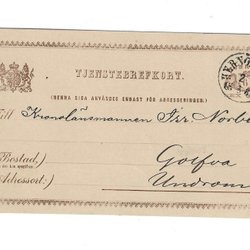 TJENSTEBREFKORT.
(DENNA SIDA ANVÄNDES ENDAST FÖR ADRESSERINGEN.)
Till Kronolänsmannen Frr. Norbe
Bostad,)
Golfva
Adressort:)
Undrom